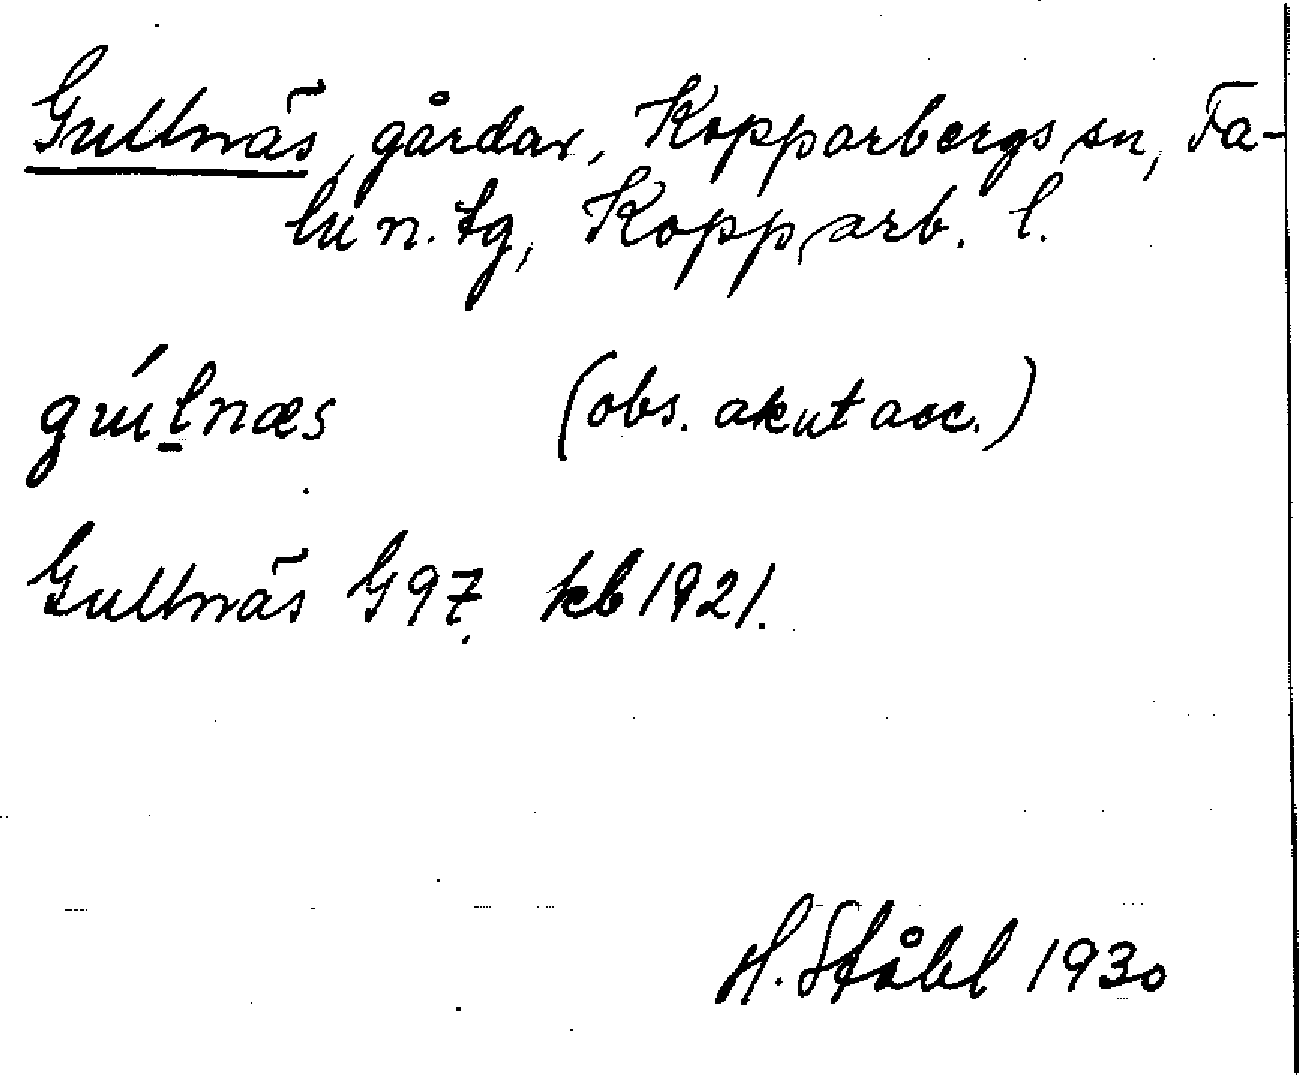 Gullnäs, gårdar, Kopparbergs sn, Fa-
lun. tg, Kopparb. l.
gúl̠næs (obs. akut acc.)
Gullnäs G97. kb 1921.
H. Ståhl 1930